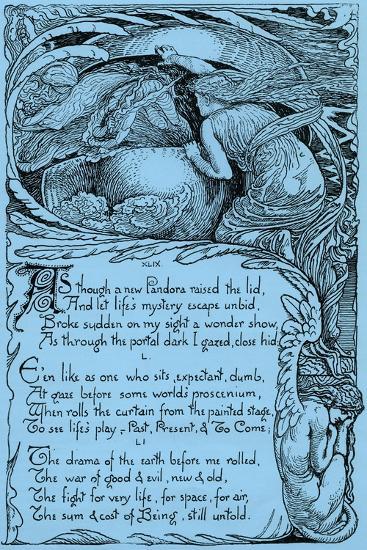 XLIX.
As though a new Pandora raised the lid,
And let life's mystery escape unbid,
Broke sudden on my sight a wonder show,
As through the portal dark I gazed, close hid.
L.
E'en like as one who sits, expectant, dumb,
At gaze before some world's proscenium,
When rolls the curtain from the painted stage,
To see life's play – Past, Present, & To Come;
LI
The drama of the earth before me rolled,
The war of good & evil, new & old,
The fight for very life, for space, for air,
The sum & cost of Being, still untold.